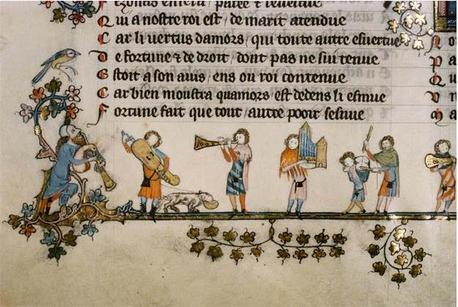 Qui a nostre roi est, de marit atendue
Car li uertus damors, qui toute autre esuertue
De fortune et de droit, dont pas ne sui tenue
Estoit a son auis, ens ou roi contenue
Car bien moustra quamors, est dedens li esmue
Fortune fait que tout, autre